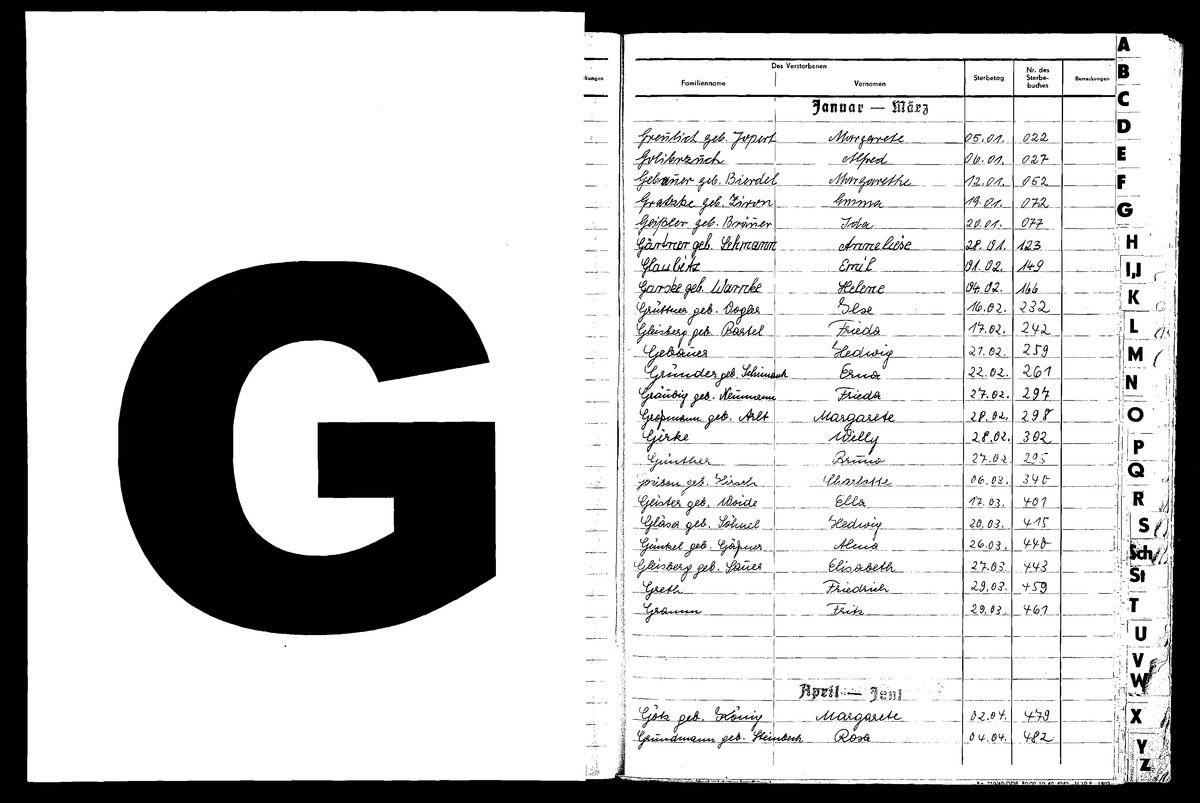 G
Des Verstorbenen
Familienname Vornamen Sterbetag Nr. des Sterbe-buches Bemerkungen
Januar — März
Greulich geb. Jopert Margarete 05.01. 022
Alfred 06.01. 027
Gebauer geb. Bierdel Margarethe 12.01. 052
Gratzke geb. Ziron Emma 19.01. 072
Geißler geb. Bräuer Ida 20.01. 077
Gärtner geb. Lehmann Anneliese 28.01. 123
Glaubitz Emil 01.02. 149
Garske geb. Warnke Helene 04.02. 166
Grüttner geb. Vogler Else 16.02. 232
Gleisberg geb. Bartel Frieda 17.02. 242
Gebauer Hedwig 21.02. 259
Gründer geb. Schimank Erna 22.02. 261
Gräubig geb. Neumann Frieda 27.02. 297
Gropmann geb. Arlt Margarete 28.02. 298
Girke Willy 28.02. 302
Günther Bruno 27.02. 295
geb. Hirsch Charlotte 06.03. 340
Geister geb. Woide Ella 17.03. 401
Gläser geb. Söhnel Hedwig 20.03. 415
Günkel geb. Alma 26.03. 440
Gleisberg geb. Sauer Elisabeth 27.03. 443
Greth Friedrich 29.03. 459
Gramm Fritz 29.03. 461
April — Juni
Götz geb. König Margarete 02.04. 479
Grundmann geb. Steinbeck Rosa 04.04. 482
A
B
C
D
E
F
G
H
I,J
K
L
M
N
O
P
Q
R
S
Sch
St
T
U
V
W
X
Y
Z